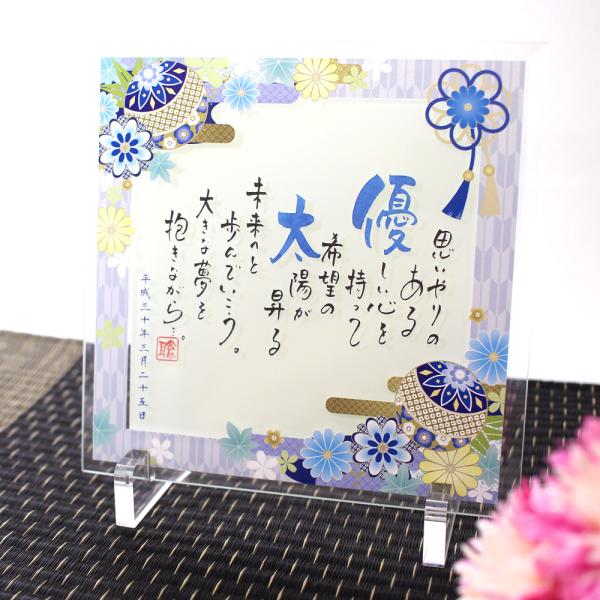 思いやりの
ある
優しい心を
持って
希望の
太陽が
昇る
未来へと
歩んでいこう。
大きな夢を
抱きながら…。
平成三十年三月二十五日